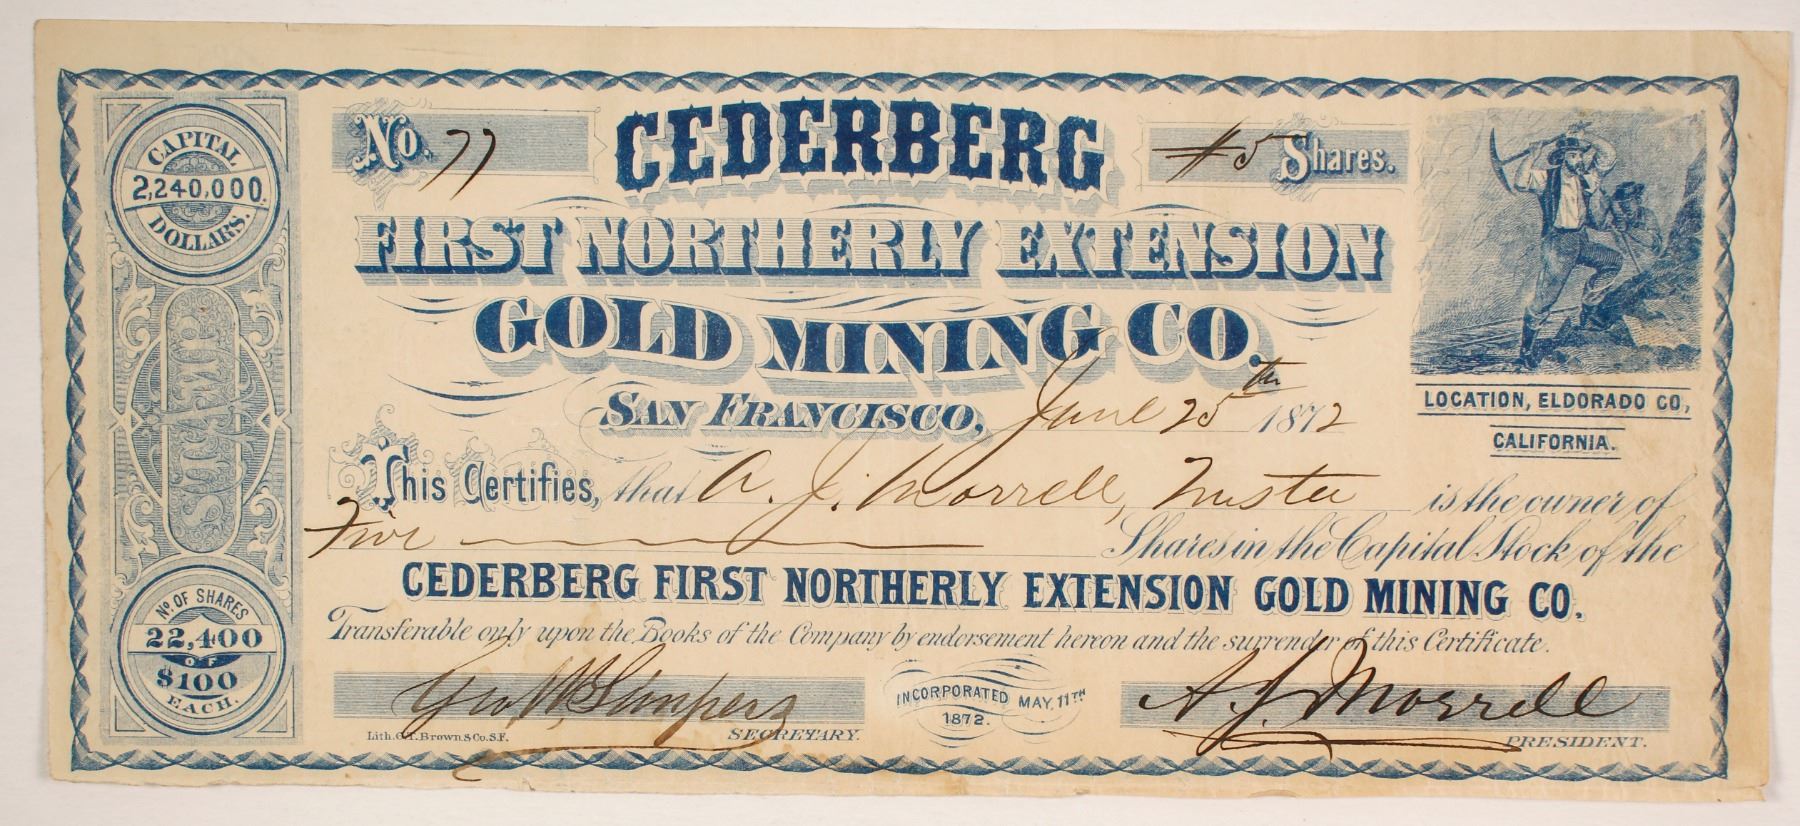 CAPITAL
2,240,000
DOLLARS.
No. 77
CEDERBERG
#5 Shares.
FIRST NORTHERLY EXTENSION
GOLD MINING CO.
SAN FRANCISCO, June 25th 1872
LOCATION, ELDORADO CO,
CALIFORNIA.
This Certifies, that A. J. Morrell, Trustee is the owner of
Five Shares in the Capital Stock of the
CEDERBERG FIRST NORTHERLY EXTENSION GOLD MINING CO.
Transferable only upon the Books of the Company by endorsement hereon and the surrender of this Certificate.
No. OF SHARES
22,400
OF
$100
EACH.
Geo W
SECRETARY.
Lith. G.T. Brown & Co. S.F.
INCORPORATED MAY, 11TH
1872.
A. J. Morrell
PRESIDENT.